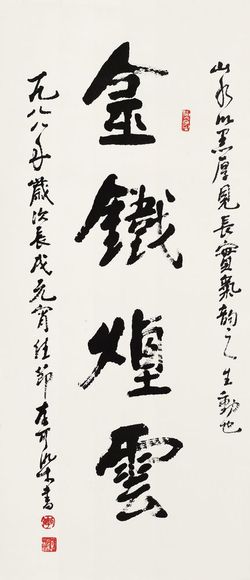 山水以黑厚見長實氣韵之生動也
金鐵煙雲
一九八八年歲次辰戊元宵佳節李可染書